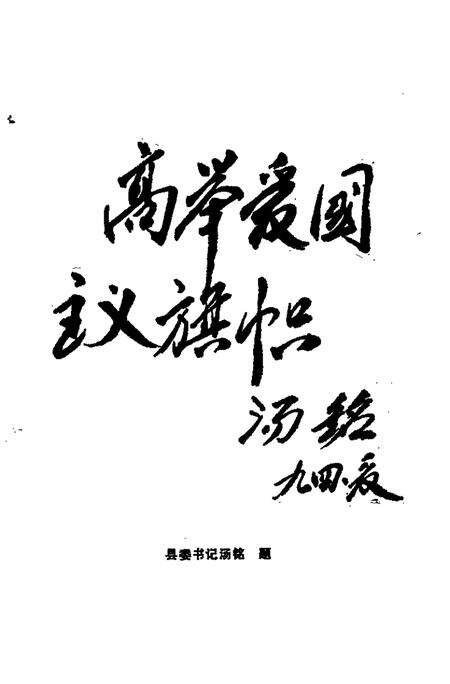 高举爱国
主义旗帜
汤铭
九四.夏
县委书记汤铭 题